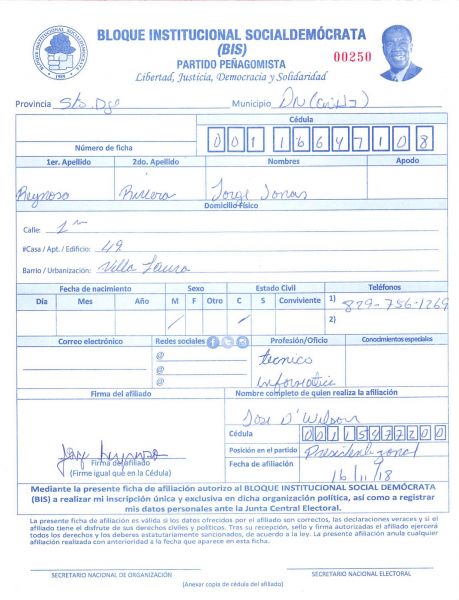 BLOQUE INSTITUCIONAL SOCIALDEMÓCRATA
(BIS)
PARTIDO PEÑAGOMISTA
Libertad, Justicia, Democracia y Solidaridad
00250
BLOQUE INSTITUCIONAL SOCIALDEMOCRATA
Provincia Sto. Dgo Municipio DN
Cédula
Número de ficha 001 1664710 8
1er. Apellido 2do. Apellido Nombres Apodo
Reynoso Rivera Jorge Jonas
Domicilio Físico
Calle: 1ra
#Casa / Apt. / Edificio: 49
Barrio / Urbanización: Villa
Fecha de nacimiento Sexo Estado Civil Teléfonos
Día Mes Año M F Otro C S Conviviente 1) 829-756-1269
2)
Correo electrónico Redes sociales Profesión/Oficio Conocimientos especiales
@ tecnico
@ informatica
@
Firma del afiliado Nombre completo de quien realiza la afiliación
Jose D' Wilson
Cédula 00115477200
Jorge Reynoso Posición en el partido Presidente zonal
Firma de afiliado Fecha de afiliación
(Firme igual que en la Cédula) 16/11/18
Mediante la presente ficha de afiliación autorizo al BLOQUE INSTITUCIONAL SOCIAL DEMÓCRATA
(BIS) a realizar mi inscripción única y exclusiva en dicha organización política, así como a registrar
mis datos personales ante la Junta Central Electoral.
La presente ficha de afiliación es válida si los datos ofrecidos por el afiliado son correctos, las declaraciones veraces y si el
afiliado tiene el disfrute de sus derechos civiles y políticos. Tras su recepción, sello y firma autorizadas el afiliado ejercerá
todos los derechos y los deberes estatutariamente sancionados, de acuerdo a la ley. La presente afiliación anula cualquier
afiliación realizada con anterioridad a la fecha que aparece en esta ficha.
SECRETARIO NACIONAL DE ORGANIZACIÓN SECRETARIO NACIONAL ELECTORAL
(Anexar copia de cédula del afiliado)